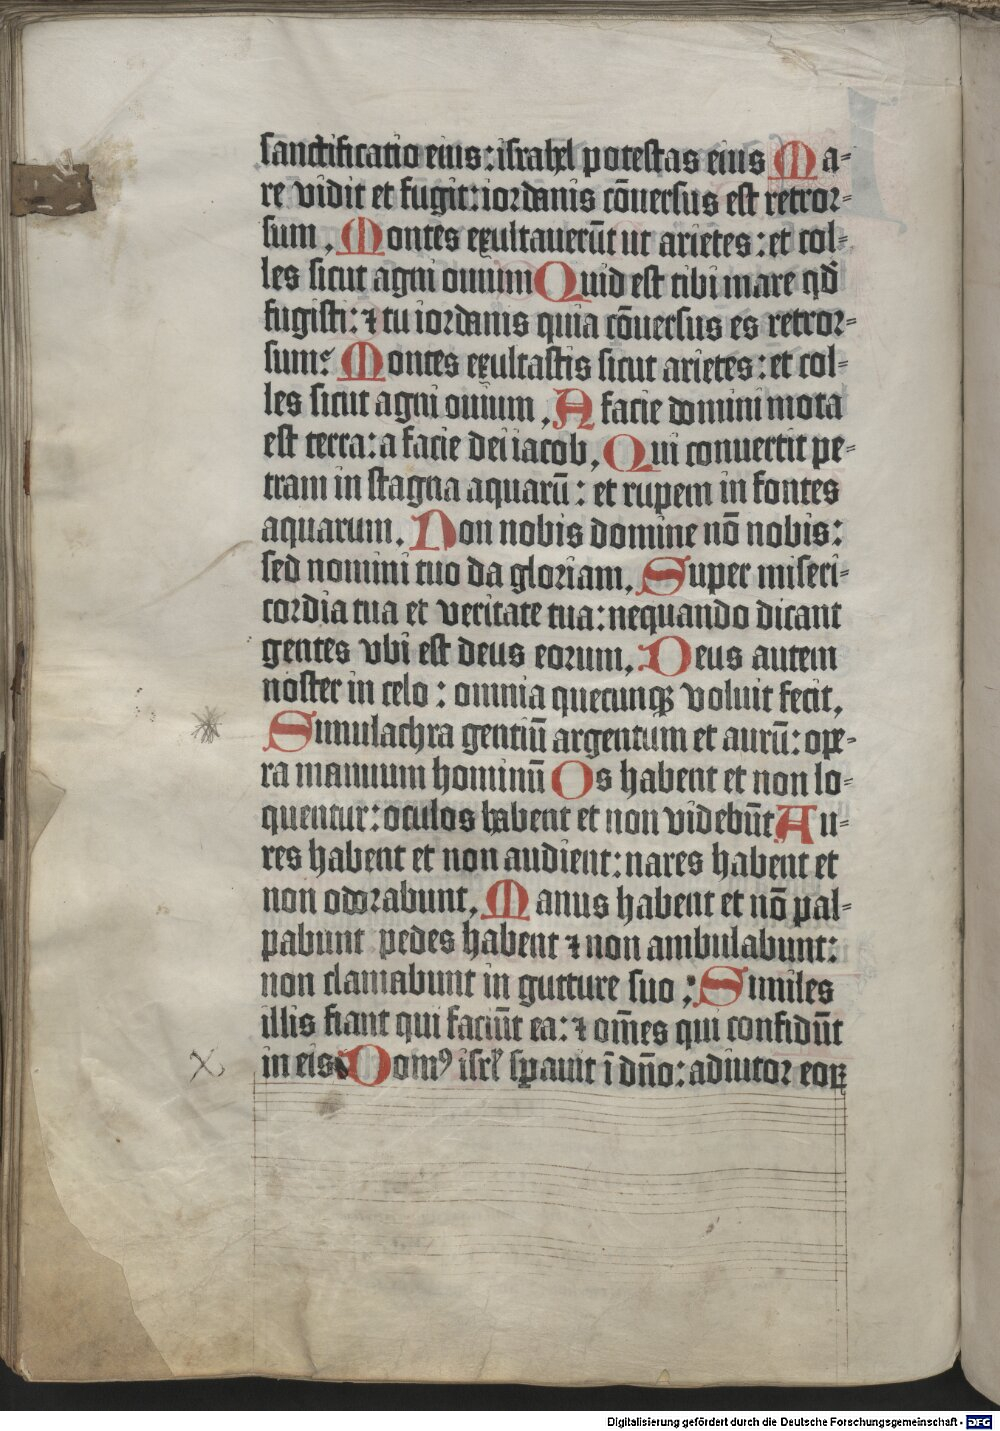 sanctificatio eius: israhel potestas eius Ma-
re vidit et fugit: iordanis cōuersus est retror-
sum, Montes exultauerūt ut arietes: et col-
les sicut agni ouium Quid est tibi mare qd̄
fugisti: ⁊ tu iordanis quia cōuersus es retror-
sum? Montes exultastis sicut arietes: et col-
les sicut agni ouium, A facie domini mota
est terra: a facie dei iacob, Qui conuertit pe-
tram in stagna aquarū: et rupem in fontes
aquarum, Non nobis domine nō nobis:
sed nomini tuo da gloriam, Super miseri-
cordia tua et veritate tua: nequando dicant
gentes vbi est deus eorum, Deus autem
noster in celo: omnia quecunqꝫ voluit fecit,
Simulachra gentiū argentum et aurū: ope-
ra manuum hominū Os habent et non lo-
quentur: oculos habent et non videbūt Au-
res habent et non audient: nares habent et
non odorabunt, Manus habent et nō pal-
pabunt pedes habent ⁊ non ambulabunt:
non clamabunt in gutture suo; Similes
illis fiant qui faciūt ea: ⁊ om̄es qui confidūt
in eis Domꝰ isrl̄ sꝑauit ī dn̄o: adiutor eoꝝ
X
Digitalisierung gefördert durch die Deutsche Forschungsgemeinschaft - DFG